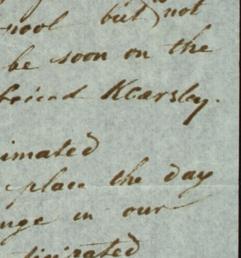 nool but not
be soon on the
friend Kearsley.
imated
place the day
nge in our
ticipated